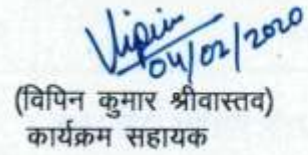 Vipin
04/02/2020
(विपिन कुमार श्रीवास्तव)
कार्यक्रम सहायक